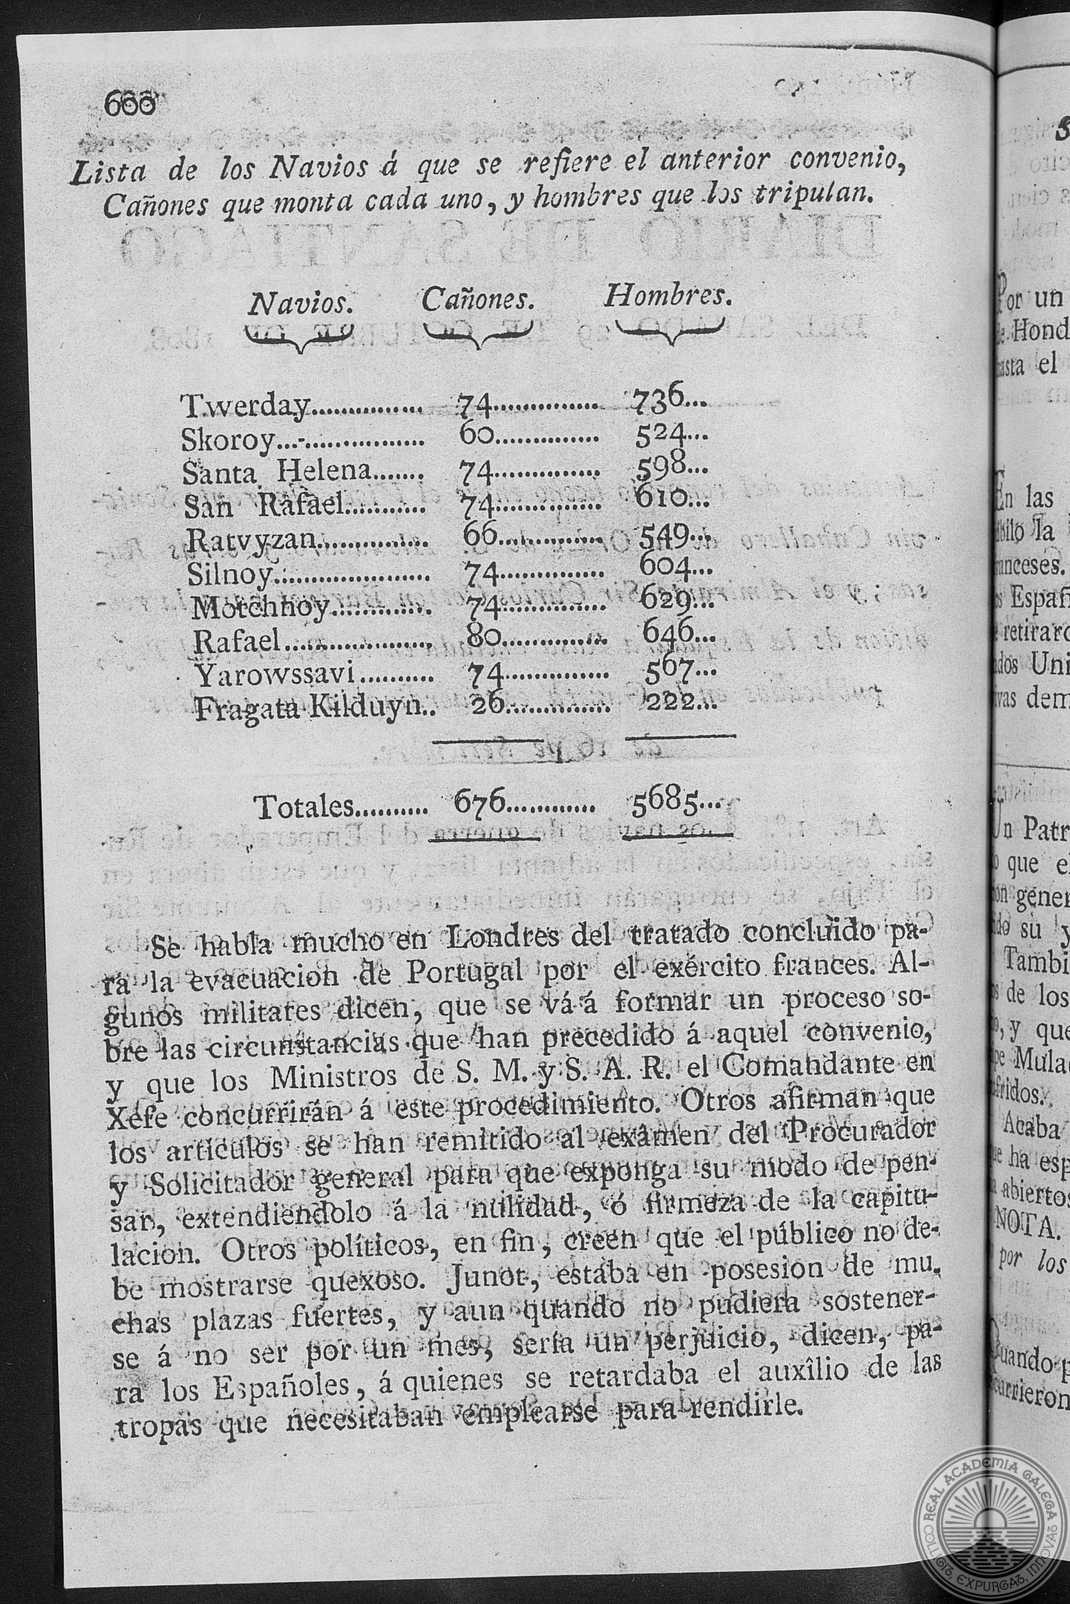 600
Lista de los Navios á que se refiere el anterior convenio,
Cañones que monta cada uno, y hombres que los tripulan.
Navios. Cañones. Hombres.
Twerday............... 74.............. 736...
Skoroy................. 60.............. 524...
Santa Helena....... 74.............. 598...
San Rafael........... 74.............. 610...
Ratvyzan.............. 66.............. 549...
Silnoy..................... 74.............. 604...
Motchnoy............. 74.............. 629...
Rafael................... 80.............. 646...
Yarowssavi.......... 74.............. 567...
Fragata Kilduyn.. 26.............. 222...
Totales.......... 676............ 5685...
Se habla mucho en Londres del tratado concluido pa-
ra la evacuacion de Portugal por el exército frances. Al-
gunos militares dicen, que se vá á formar un proceso so-
bre las circunstancias que han precedido á aquel convenio,
y que los Ministros de S. M. y S. A. R. el Comandante en
Xefe concurrirán á este procedimiento. Otros afirman que
los artículos se han remitido al exâmen del Procurador
y Solicitador general para que exponga su modo de pen-
sar, extendiendolo á la nulidad, ó firmeza de la capitu-
lacion. Otros políticos, en fin, creen que el público no de-
be mostrarse quexoso. Junot, estaba en posesion de mu-
chas plazas fuertes, y aun quando no pudiera sostener-
se á no ser por un mes, sería un perjuicio, dicen, pa-
ra los Españoles, á quienes se retardaba el auxîlio de las
tropas que necesitaban emplearse para rendirle.
or un
Hond
el
En las
la
anceses.
Españ
retiraro
dos Uni
vas dem
Un Patr
que el
gener
su y
Tambi
de los
y que
Mula
Acaba
ha esp
abiertos
NOTA.
por los
uando p
currieron
REAL ACADEMIA GALEGA
COLLIGIT, EXPURGAT, INNOVAT